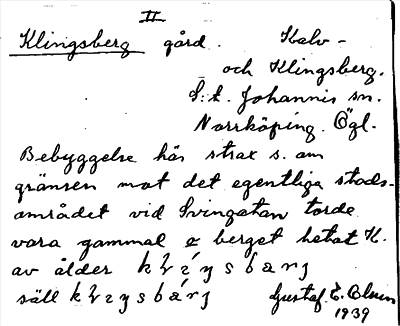 II
Klingsberg gård. Kalv-
och Klingsberg.
S:t Johannis sn.
Norrköping. Ögl.
Bebyggelse här strax s. om
gränsen mot det egentliga stads-
området vid Svingatan torde
vara gammal o berget hetat K.
av ålder
säll
Gustaf E. Olsson
1939